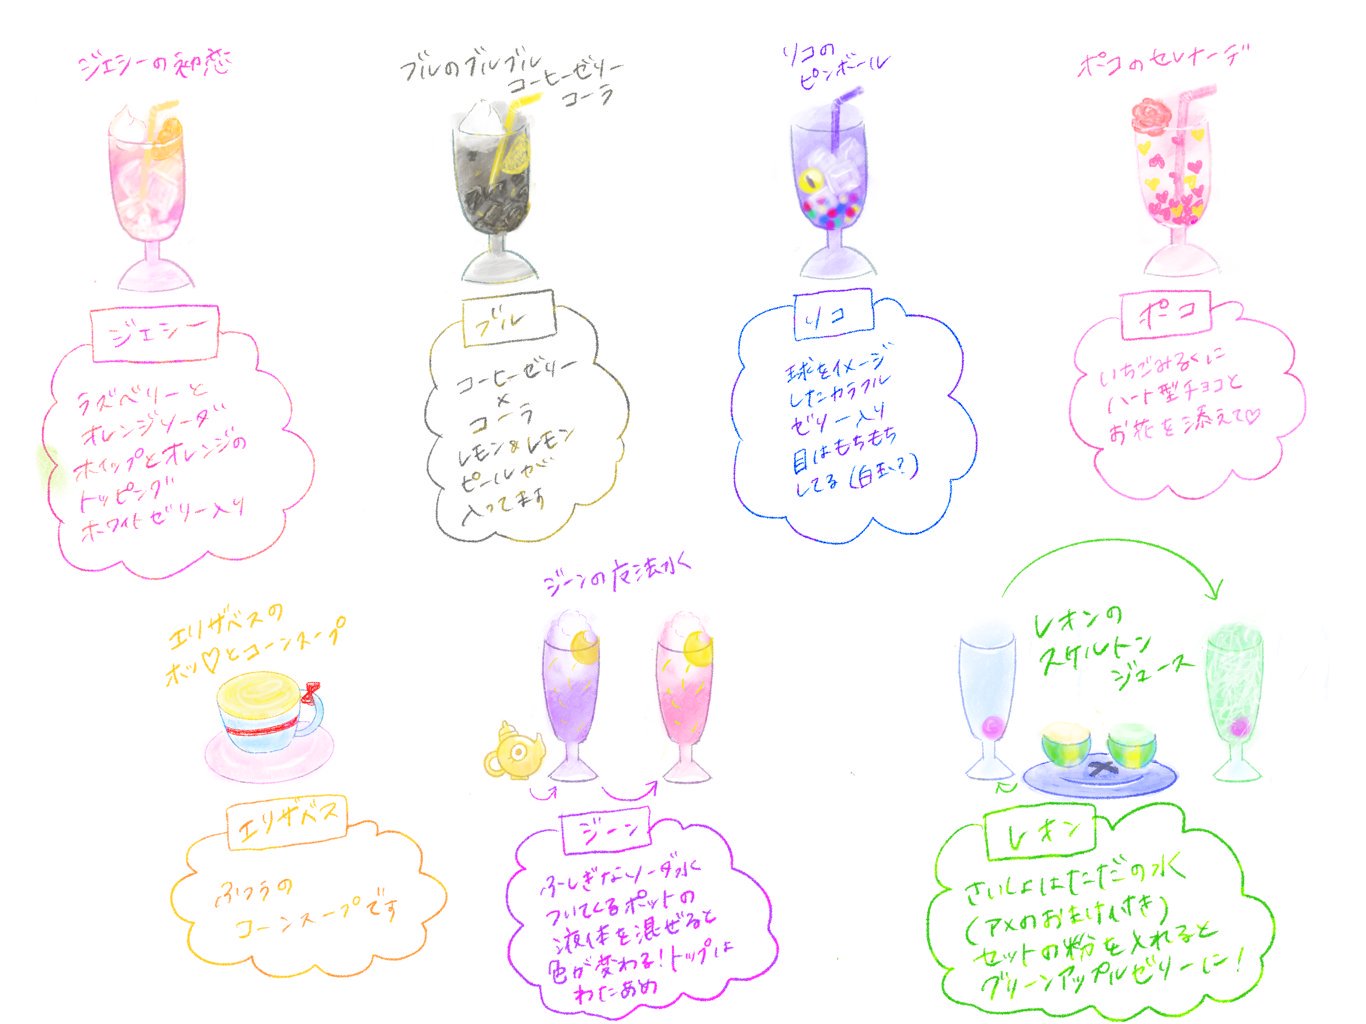 ジェシーの初恋
ブルのブルブル
コーヒーゼリー
コーラ
リコの
ピンボール
ポコのセレナーデ
ジェシー
ラズベリーと
オレンジソーダ
ホイップとオレンジの
トッピング
ホワイトゼリー入り
ブル
コーヒーゼリー
×
コーラ
レモン&レモン
ピールが
入ってます
リコ
球をイメージ
したカラフル
ゼリー入り
目はもちもち
してる(白玉?)
ポコ
いちごみるくに
ハート型チョコと
お花を添えて♡
エリザベスの
ホッ♡とコーンスープ
エリザベス
ふつうの
コーンスープです
ジーンの魔法水
ジーン
ふしぎなソーダ水
ついてくるポットの
液体を混ぜると
色が変わる!トップは
わたあめ
レオンの
スケルトン
ジュース
レオン
さいしょはただの水
(アメのおまけ付き)
セットの粉を入れると
グリーンアップルゼリーに!